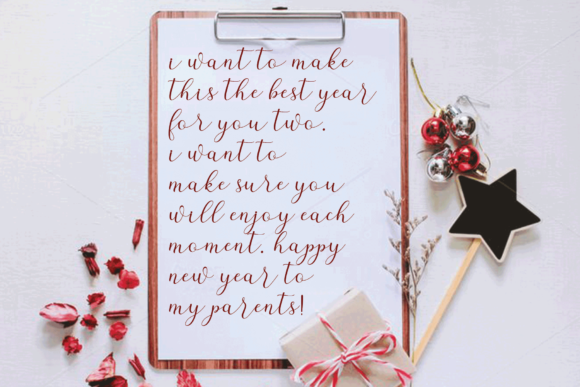 i want to make
this the best year
for you two.
i want to
make sure you
will enjoy each
moment. happy
new year to
my parents!